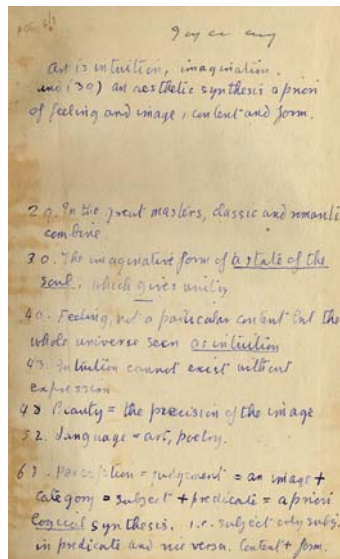 Art is intuition, imagination.
and (30) an aesthetic synthesis a priori
of feeling and image, content and form.
29. In the great masters, classic and romantic
combine
30. The imaginative form of a state of the
soul. which gives unity
40. Feeling, not a particular content but the
whole universe seen as intuition
43. Intuition cannot exist without
expression
48 Beauty = the precision of the image
52. Language = art, poetry.
Perception = judgement = an image +
category = subject + predicate = a priori
logical synthesis. i.e. subject only subj.
in predicate and vice versa. Content + form.